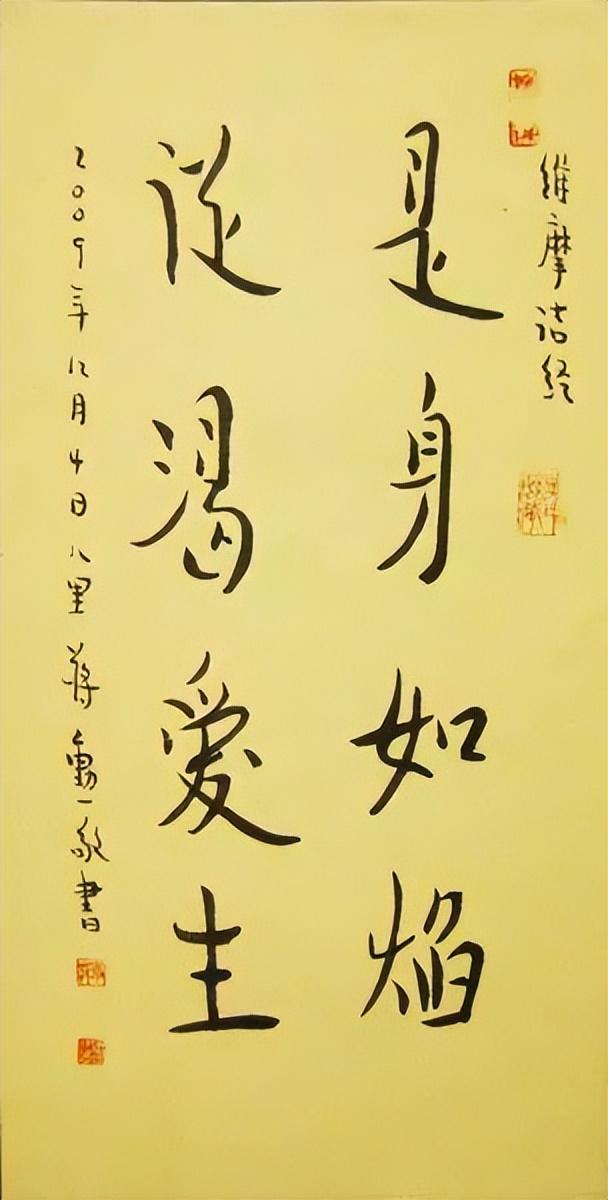 维摩诘经
是身如焰
從渴愛生
2009年12月4日八里蔣勳敬書